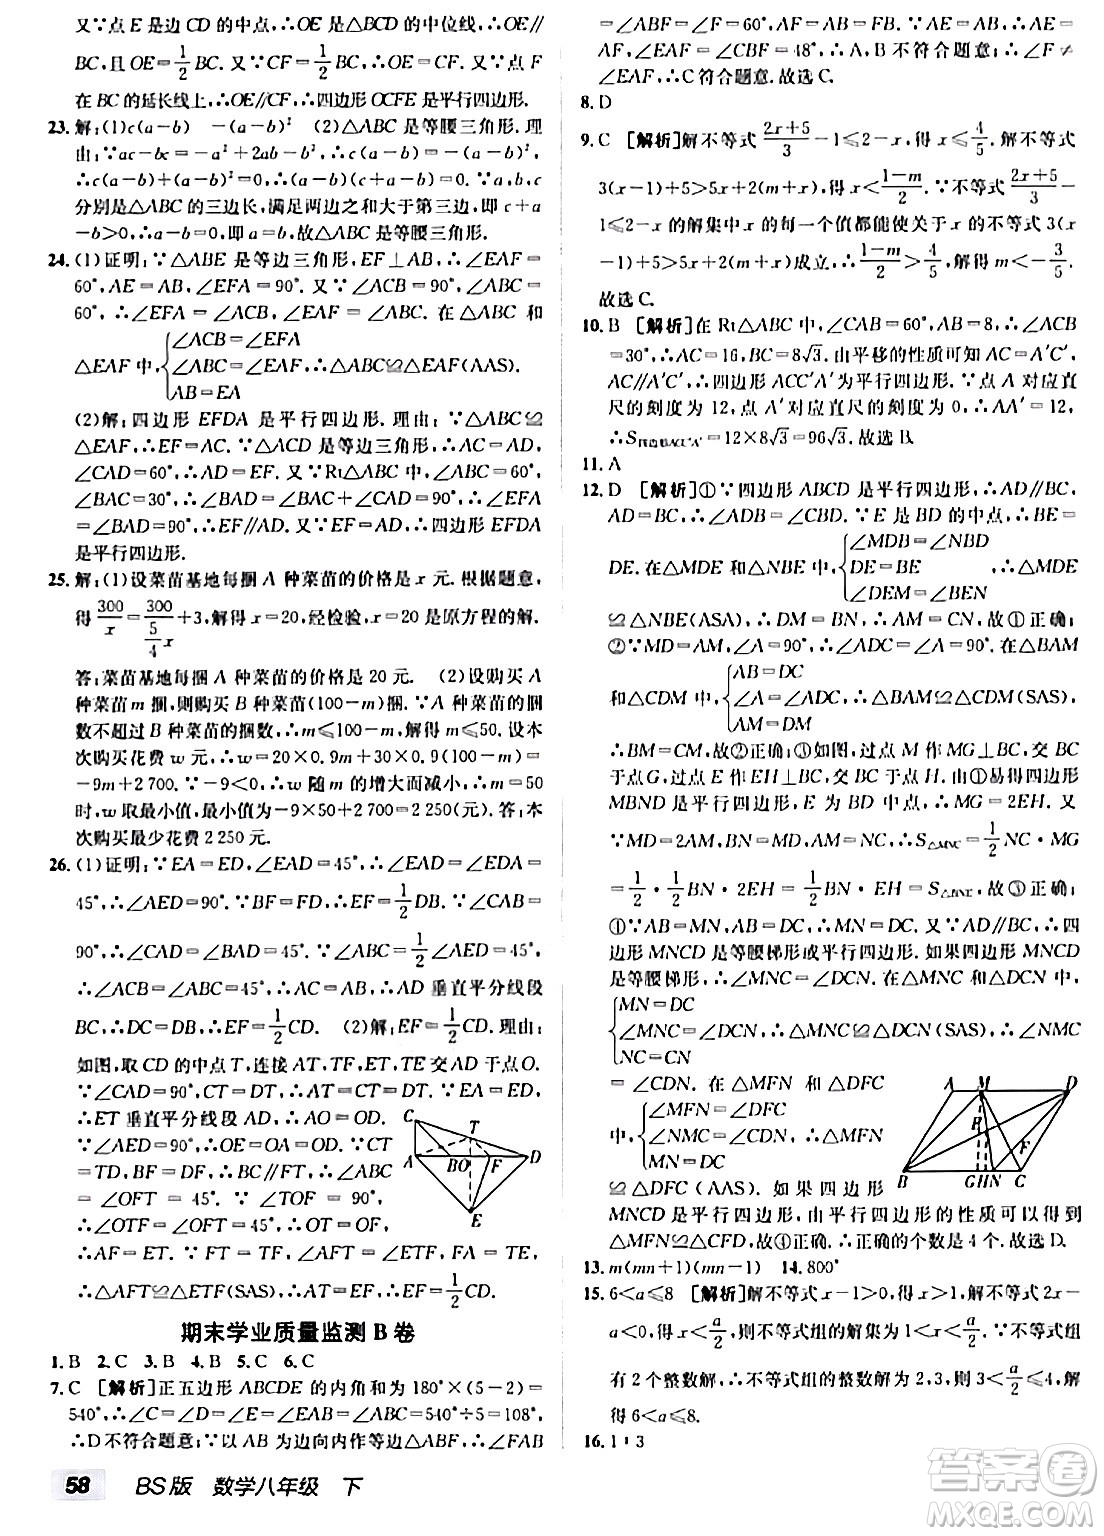 又∵点E是边CD的中点,∴OE是△BCD的中位线,∴OE∥
BC,且OE=1/2BC.又∵CF=1/2BC,∴OE=CF.又∵点F
在BC的延长线上,∴OE∥CF,∴四边形OCFE是平行四边形.
23.解:(1)c(a-b) -(a-b)² (2)△ABC是等腰三角形.理
由:∵ac-bc=-a²+2ab-b²,∴c(a-b)=-(a-b)²,
∴c(a-b)+(a-b)²=0,∴(a-b)(c+a-b)=0.∵a,b,c
分别是△ABC的三边长,满足两边之和大于第三边,即c+a
-b>0,∴a-b=0,即a=b,故△ABC是等腰三角形.
24.(1)证明:∵△ABE是等边三角形,EF⊥AB,∴∠EAF=
60°,AE=AB,∠EFA=90°.又∵∠ACB=90°,∠ABC=
60°,∴∠EFA=∠ACB,∠EAF=∠ABC.在△ABC和
△EAF中,{∠ACB=∠EFA
∠ABC=∠EAF,∴△ABC≌△EAF(AAS).
AB=EA
(2)解:四边形EFDA是平行四边形.理由:∵△ABC≌
△EAF,∴EF=AC.∵△ACD是等边三角形,∴AC=AD,
∠CAD=60°,∴AD=EF.又∵Rt△ABC中,∠ABC=60°,
∠BAC=30°,∴∠BAD=∠BAC+∠CAD=90°,∴∠EFA
=∠BAD=90°,∴EF∥AD.又∵EF=AD,∴四边形EFDA
是平行四边形.
25.解:(1)设菜苗基地每捆A种菜苗的价格是x元.根据题意,
得300/x=300/(5/4 x)+3,解得x=20,经检验,x=20是原方程的解.
答:菜苗基地每捆A种菜苗的价格是20元. (2)设购买A
种菜苗m捆,则购买B种菜苗(100-m)捆.∵A种菜苗的捆
数不超过B种菜苗的捆数,∴m≤100-m,解得m≤50.设本
次购买花费w元,∴w=20×0.9m+30×0.9(100-m)=
-9m+2 700.∵-9<0,∴w随m的增大而减小,∴m=50
时,w取最小值,最小值为-9×50+2 700=2 250.答:本
次购买最少花费2 250元.
26.(1)证明:∵EA=ED,∠EAD=45°,∴∠EAD=∠EDA=
45°,∴∠AED=90°.∵BE=BD,∴EF=1/2BD.∵∠CAB=
90°,∴∠CAD=∠BAD=45°.∵∠ABC=1/2∠AED=45°,
∴∠ACB=∠ABC=45°,∴AC=AB,∴AD垂直平分线段
BC,∴DC=DB,∴EF=1/2CD. (2)解:EF=1/2CD.理由:
如图,取CD的中点T,连接AT,TF,ET,TE交AD于点O.
∵∠CAD=90°,CT=DT,∴AT=CT=DT.∵EA=ED,
∴ET垂直平分线段AD,∴AO=OD.
∵∠AED=90°,∴OE=OA=OD.∵CT
=TD,BF=DF,∴BC∥TF,∴∠ABC
=∠OFT=45°.∵∠TOF=90°,
∴∠OTF=∠OFT=45°,∴OT=OF,
∴AF=ET.∵FT=TF,∠AFT=∠ETF,FA=TE,
∴△AFT≌△ETF(SAS),∴AT=EF,∴EF=1/2CD.
C T A BO F D E
期末学业质量监测B卷
1.B 2.C 3.B 4.B 5.C 6.C
7.C [解析]正五边形ABCDE的内角和为180°×(5-2)=
540°,∴∠C=∠D=∠E=∠EAB=∠ABC=540°÷5=108°,
∴D不符合题意;∵以AB为边向内作等边△ABF,∴∠FAB
=∠ABF=∠F=60°,AF=AB=FB.∵AE=AB,∴AE=
AF,∠EAF=∠EAB-∠FAB=48°,∴A,B不符合题意,∴∠F≠
∠EAF,∴C符合题意.故选C.
8.D
9.C [解析]解不等式(2x+5)/3-1≤2-x,得x≤4/5.解不等式
3(x-1)+5>5x+2(m+x),得x<(1-m)/2.∵不等式(2x+5)/3-
1≤2-x的解集中x的每一个值都能使关于x的不等式3(x
-1)+5>5x+2(m+x)成立,∴(1-m)/2>4/5,解得m<-3/5.
故选C.
10.B [解析]在Rt△ABC中,∠CAB=60°,AB=8,∴∠ACB
=30°,∴AC=16,BC=8√3.由平移的性质可知AC=A′C′,
AC∥A′C′,∴四边形ACC′A′为平行四边形.∵点A对应直
尺的刻度为12,点A′对应直尺的刻度为0,∴AA′=12,
∴S四边形ACC′A′=12×8√3=96√3.故选B.
11.A
12.D [解析]①∵四边形ABCD是平行四边形,∴AD∥BC,
AD=BC,∴∠ADB=∠CBD.∵E是BD的中点,∴BE=
DE.在△MDE和△NBE中,{∠MDB=∠NBD
DE=BE ,∴△MDE
∠DEM=∠BEN
≌△NBE(ASA),∴DM=BN,∴AM=CN,故①正确;
②∵MD=AM,∠A=90°,∴∠ADC=∠A=90°.在△BAM
和△CDM中,{AB=DC
∠A=∠ADC,∴△BAM≌△CDM(SAS),
AM=DM
∴BM=CM,故②正确;③如图,过点M作MG⊥BC,交BC
于点G,过点E作EH⊥BC,交BC于点H.由①易得四边形
MBND是平行四边形,E为BD中点,∴MG=2EH.又
∵MD=2AM,BN=MD,AM=NC,∴S△MNC=1/2NC·MG
=1/2·1/2BN·2EH=1/2BN·EH=S△BNE,故③正确;
④∵AB=MN,AB=DC,∴MN=DC.又∵AD∥BC,∴四
边形MNCD是等腰梯形或平行四边形.如果四边形MNCD
是等腰梯形,∴∠MNC=∠DCN.在△MNC和△DCN中,
{MN=DC
∠MNC=∠DCN,∴△MNC≌△DCN(SAS),∴∠NMC
NC=CN
=∠CDN.在△MFN和△DFC
中,{∠MFN=∠DFC
∠NMC=∠CDN,∴△MFN
MN=DC
≌△DFC(AAS).如果四边形
MNCD是平行四边形,由平行四边形的性质可以得到
△MFN≌△CFD,故④正确.∴正确的个数是4个.故选D.
A M D E F B GHN C
13.m(mn+1)(mn-1) 14.800°
15.6<a≤8 [解析]解不等式x-1>0,得x>1.解不等式2x-
a<0,得x<a/2,则不等式组的解集为1<x<a/2.∵不等式组
有2个整数解,∴不等式组的整数解为2,3,则3<a/2≤4,解
得6<a≤8.
16.1∶3
58 BS版 数学八年级 下
答案圈
MXQE.COM